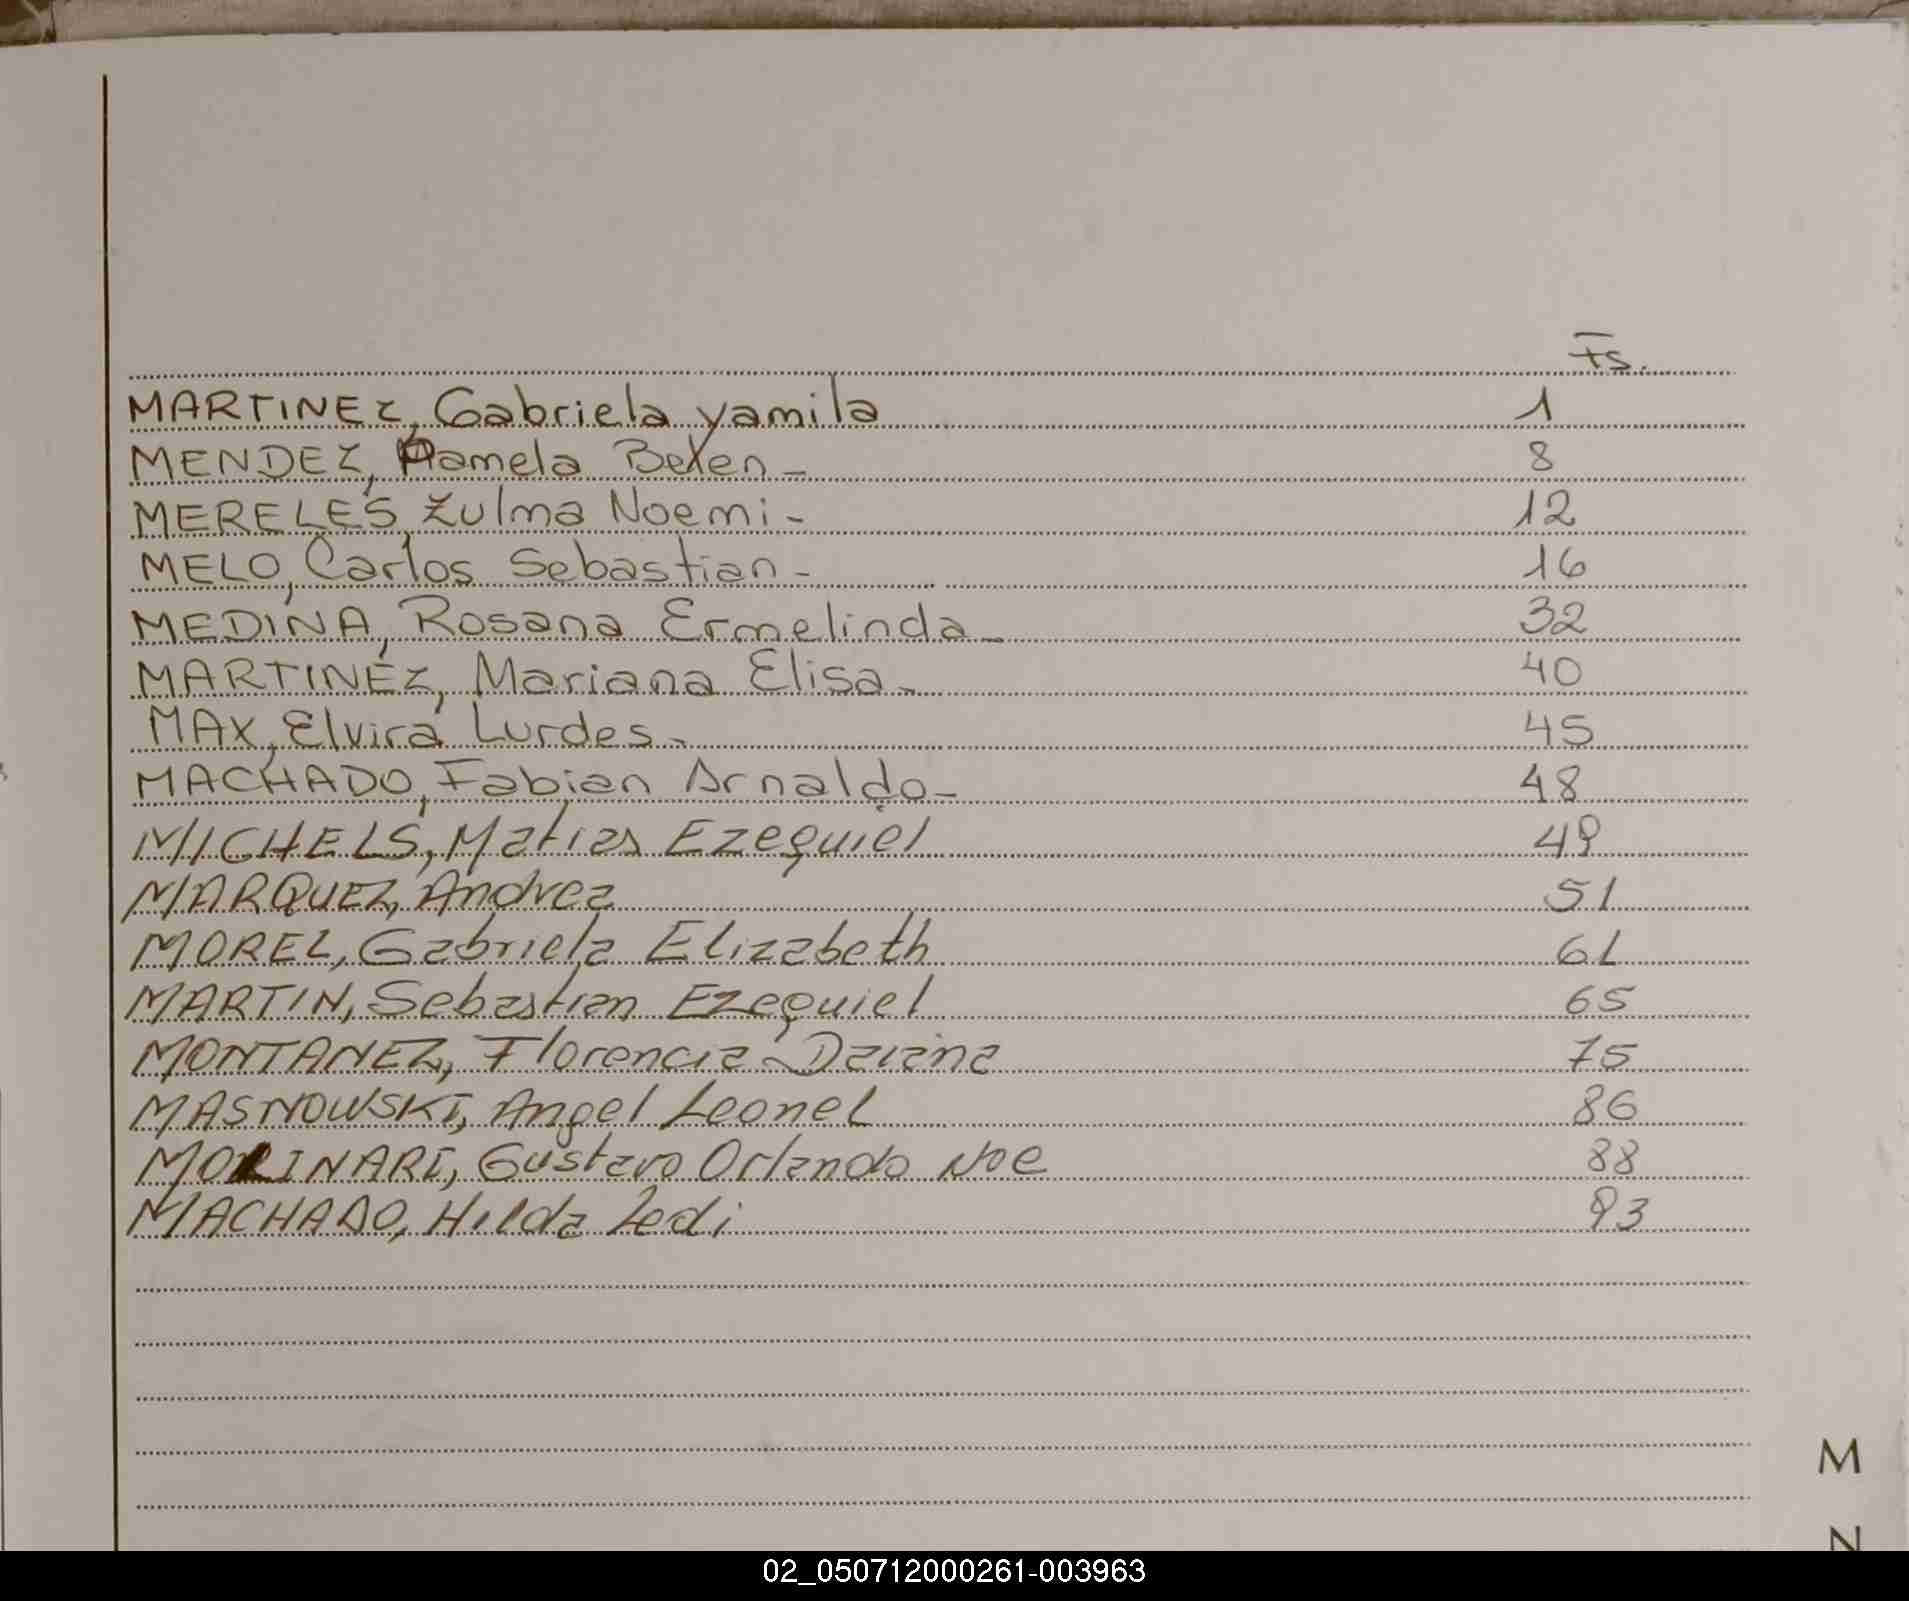 Fs.
MARTINEZ, Gabriela yamila 1
MENDEZ, Pamela Belen - 8
MERELES, Zulma Noemi - 12
MELO, Carlos Sebastian - 16
MEDINA, Rosana Ermelinda - 32
MARTINEZ, Mariana Elisa - 40
MAX, Elvira Lurdes - 45
MACHADO, Fabian Arnaldo - 48
MICHELS, Matias Ezequiel 49
MARQUEZ, Andrea 51
MOREL, Gabriela Elizabeth 61
MARTIN, Sebastian Ezequiel 65
MONTANEZ, Florencia Daiana 75
MASNOWSKI, Angel Leonel 86
MOLINARI, Gustavo Orlando Noe 88
MACHADO, Hilda Ledi 93
M
N
02_050712000261-003963